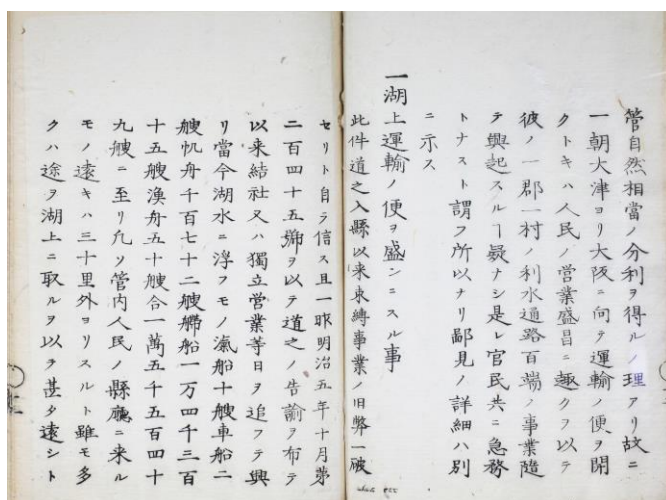 管自然相當ノ分利ヲ得ルノ理アリ故ニ
一朝大津ヨリ大阪ニ向テ運輸ノ便ヲ開
クトキハ人民ノ営業盛昌ニ趣クヲ以テ
彼ノ一郡一村ノ利水通路百端ノ事業随
テ興起スルヿ疑ナシ是レ官民共ニ急務
トナスト謂フ所以ナリ鄙見ノ詳細ハ別
ニ示ス
一湖上運輸ノ便ヲ盛ンニスル事
此件道之入縣以来束縛事業ノ旧弊一破
セリト自ラ信ス且一昨明治五年十月第
二百四十五号ヲ以テ道之ノ告諭ヲ布テ
以来結社又ハ獨立営業等日ヲ追フテ興
リ當今湖水ニ浮フモノ滊船十艘車船二
艘帆舟千百七十二艘艜船一万四千三百
十五艘漁舟五十艘合一萬五千五百四十
九艘ニ至リ凢ソ管内人民ノ縣廳ニ来ル
モノ遠キハ三十里外ヨリスルト雖モ多
クハ途ヲ湖上ニ取ルヲ以テ甚タ遠シト